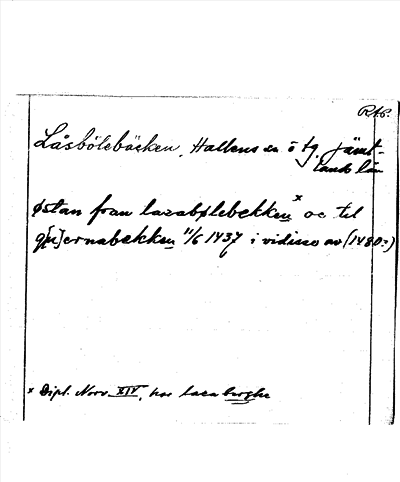 RAP.
Låsbölebäcken, Hallens sn ö tg Jämt-
lands län
østan fran lazabølebekken x oc til
q[u]ernabekken 11/6 1437 i vidisse av (1480?)
x Dipl. Norv. XIV, har laza berghe